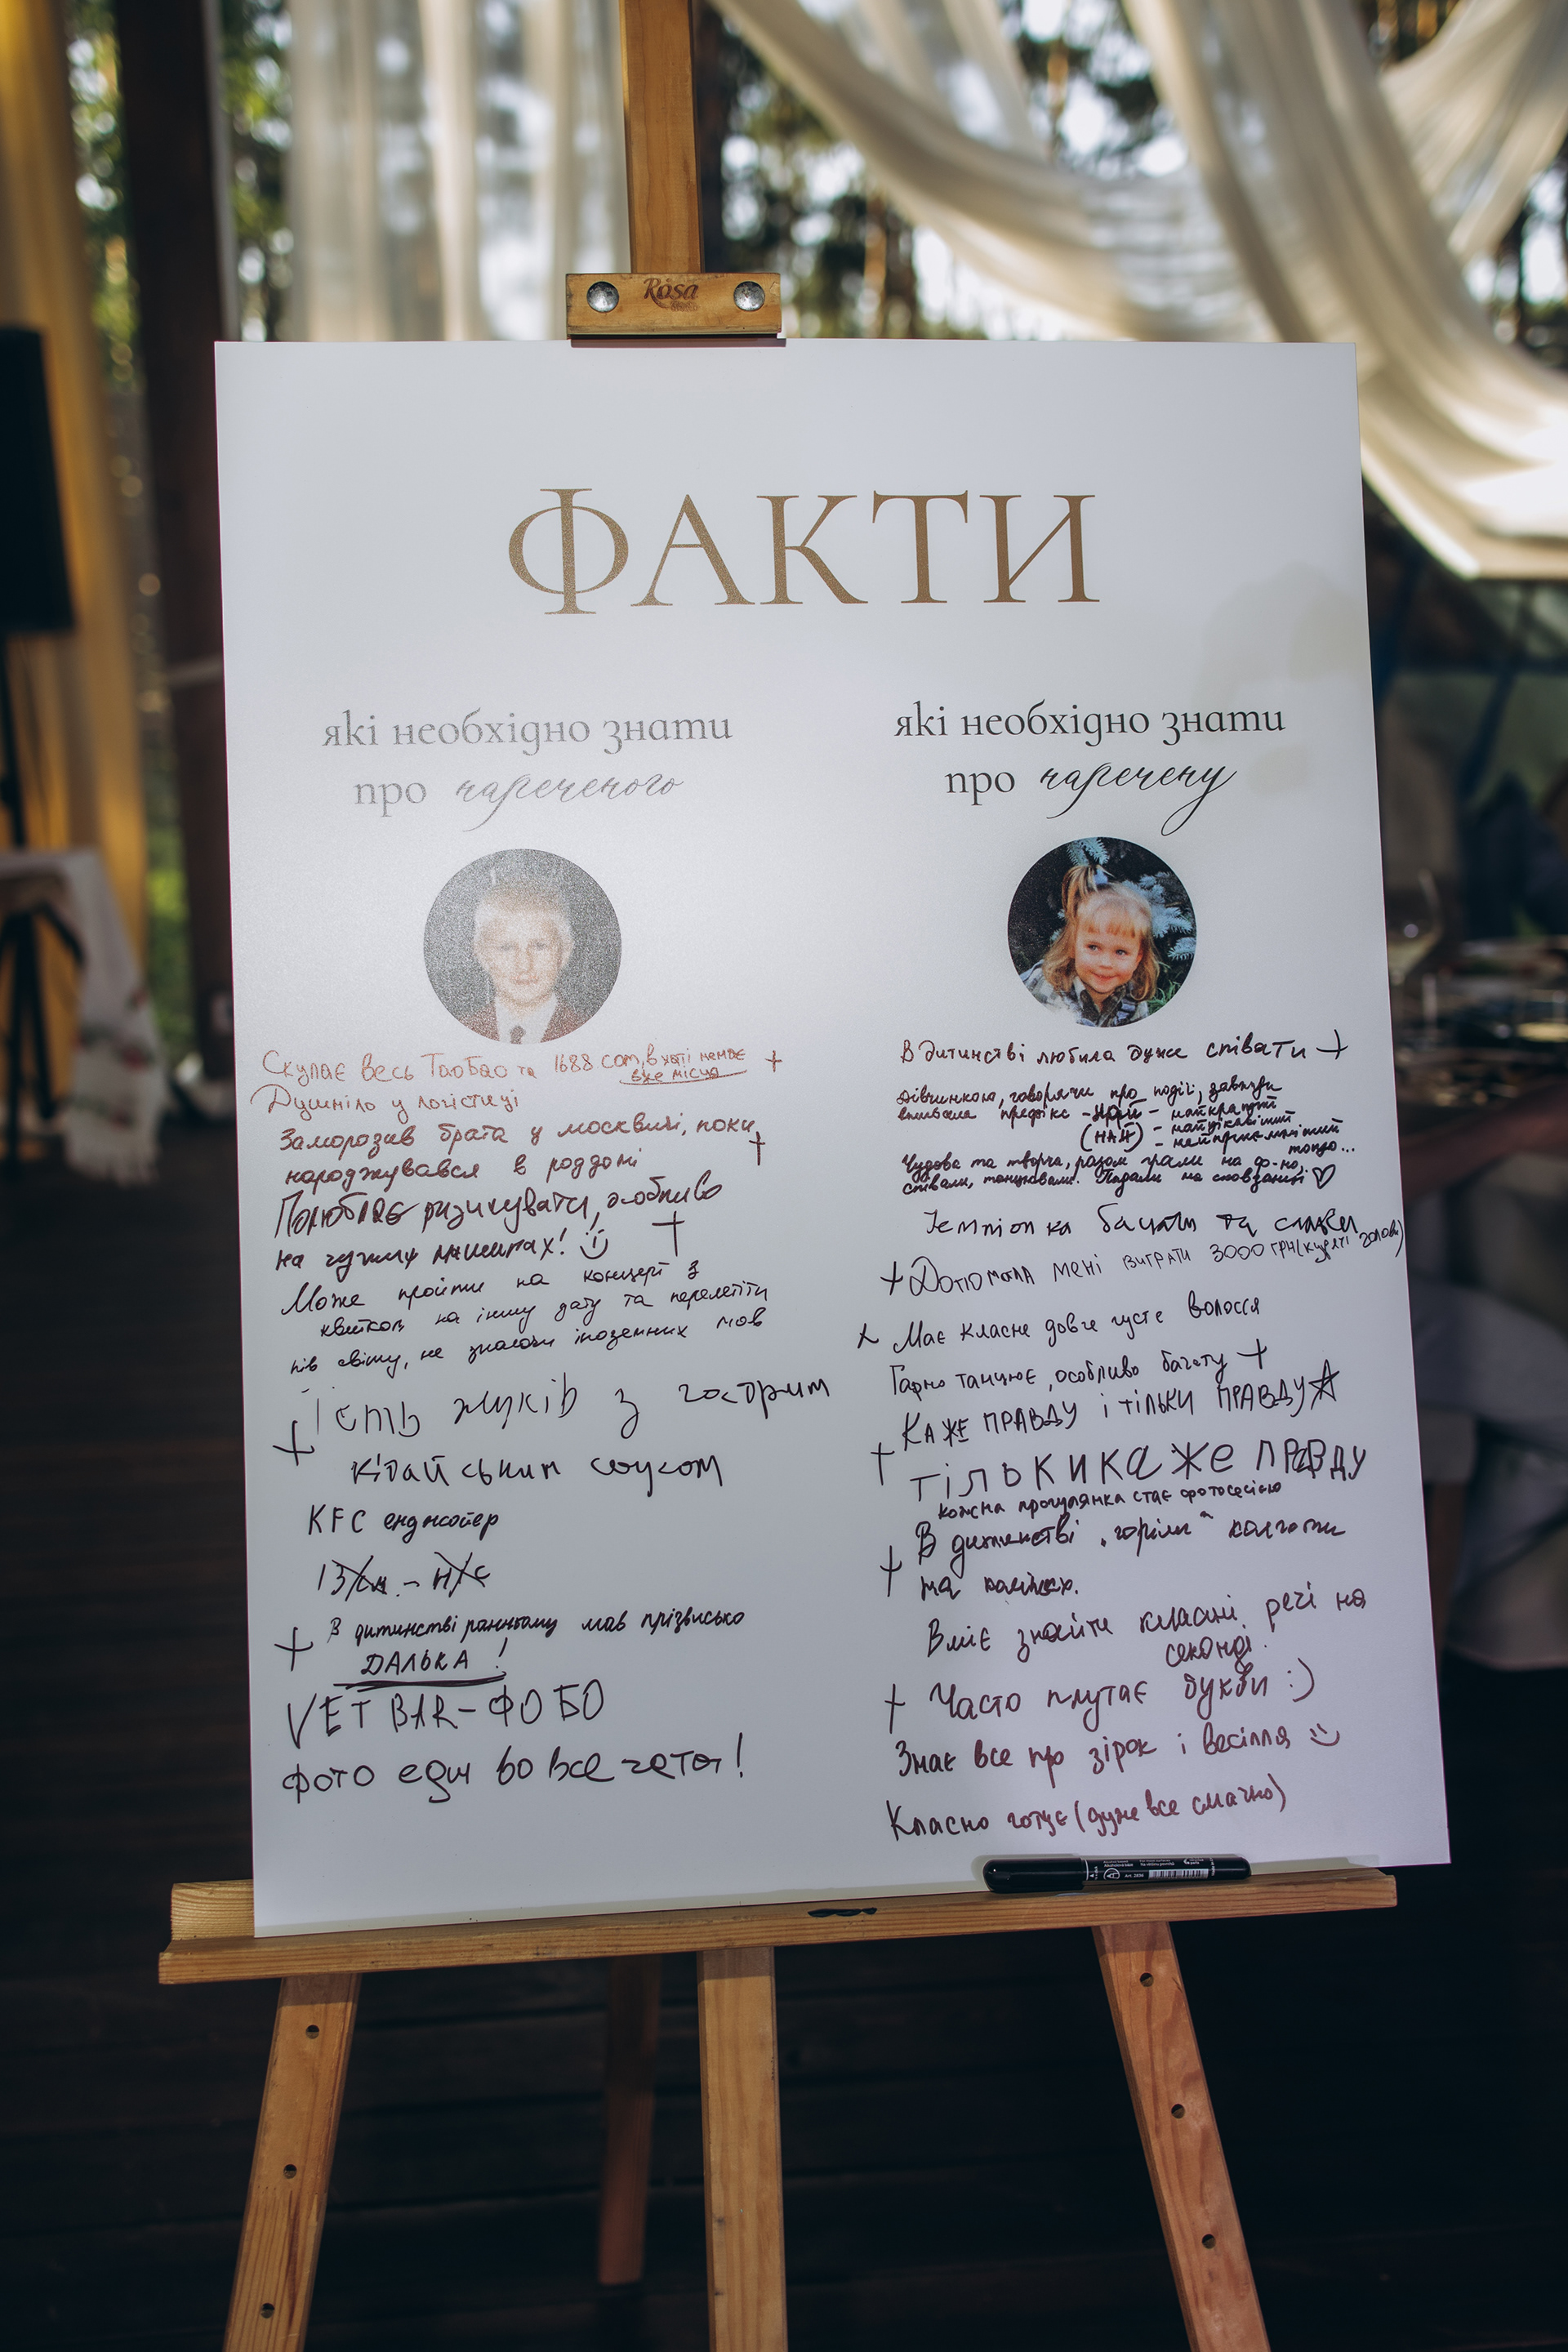 Rosa
ФАКТИ
які необхідно знати
про нареченого
Скупає весь Таобао та 1688 com, в хаті немає
вже місця
Душніло у логістиці
Заморозив брата у москвичі, поки
народжувався в роддомі
Полюбляє ризикувати, особливо
на чужих машинах!
Може пройти на концерт з
квитком на іншу дату та перелетіти
пів світу, не знаючи іноземних мов
Їсть жуків з гострим
кітайським соусом
KFC енджоєр
В дитинстві ранньому мав прізвисько
ДАЛЬКА!
VET BAR-ФОБО
Фото еди во все чата!
які необхідно знати
про наречену
В дитинстві любила дуже співати
дівчинкою, говорячи про події, завжди
вживала префікс - най - найкращий
(НАЙ) - найцікавіший
- найприємніший
тощо...
Чудова та творча, разом грали на ф-но,
співали, танцювали. Падали на сковзанці
Чемпіонка бачати та
Допомогла мені виграти 3000 грн (курячі голови)
Має класне довге густе волосся
Гарно танцює, особливо бачату
КАЖЕ ПРАВДУ і ТІЛЬКИ ПРАВДУ
ТІЛЬКИ КАЖЕ ПРАВДУ
кожна прогулянка стає фотосесією
В дитинстві "горіли" колготи
на колінах.
Вміє знайти класні речі на
секонді.
Часто плутає букви :)
Знає все про зірок і весілля
Класно готує (дуже все смачно)